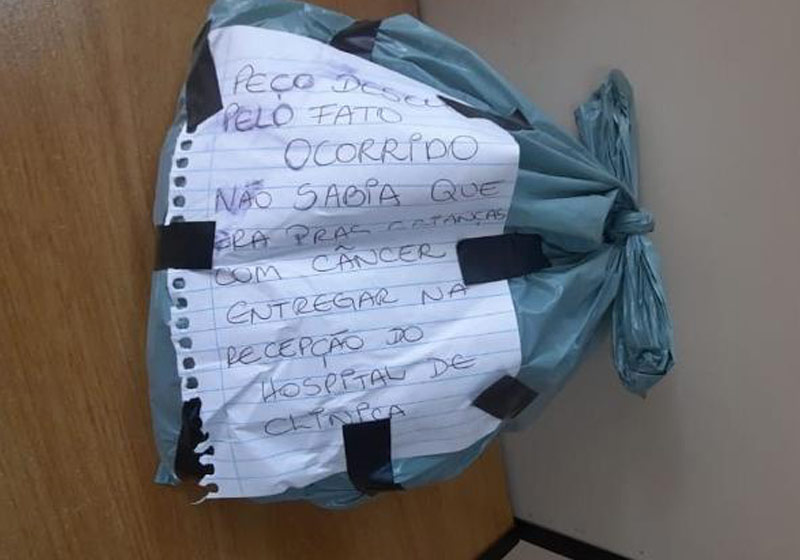 PEÇO
PELO FATO
OCORRIDO
NÃO SABIA QUE
ERA PRAS CRIANÇAS
COM CÂNCER
ENTREGAR NA
RECEPÇÃO DO
HOSPITAL DE
CLINICA